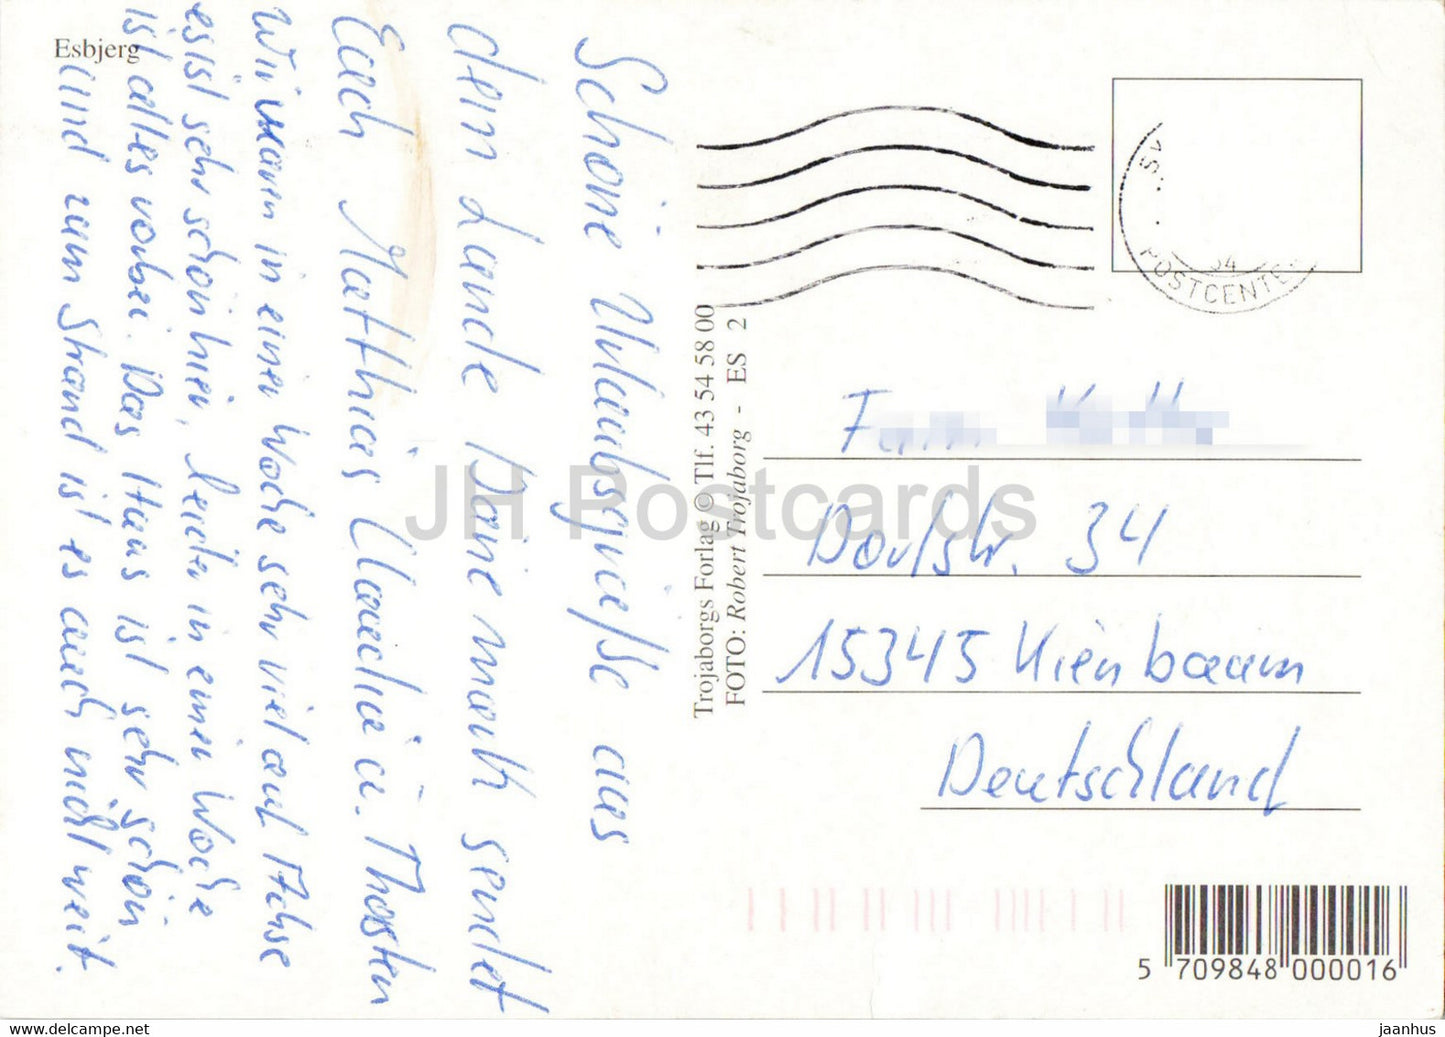 Esbjerg
Schöne Urlaubsgrüße aus
dem Lande Däne mark sendet
Euch Matthias Claudia u. Thorsten
Wir waren in einer Woche sehr viel auf Achse
es ist sehr schön hier, leider in einer Woche
ist alles vorbei. Das Haus ist sehr schön
und zum Strand ist es auch nicht weit.
Trojaborgs Forlag © Tlf. 43 54 58 00
FOTO: Robert Trojaborg - ES 2
POSTCENTE
Fam
Dorfstr. 34
15345 Kienbaum
Deutschland
5 709848 000016
JH Postcards
https://www.delcampe.net
jaanhus